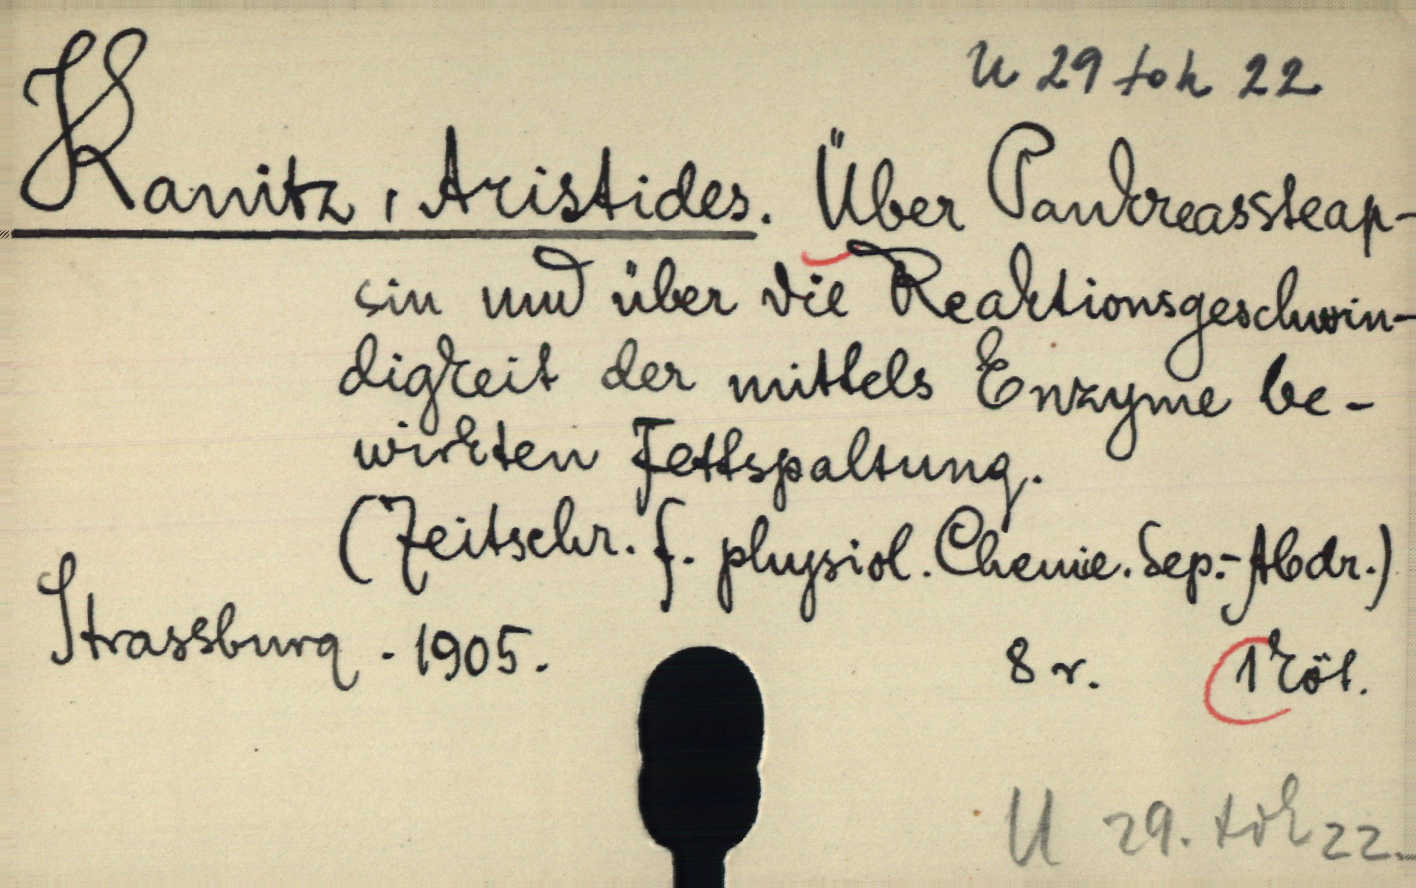 U 29 tok 22
Kanitz, Aristides. Über Pankreassteap-
sin und über die Reaktionsgeschwin-
digkeit der mittels Enzyme be-
wirkten Fettspaltung.
(Zeitschr. f. physiol. Chemie. Sep.-Abdr.)
Strassburg. 1905. 8 r. 1 köt.
U 29. tok 22.